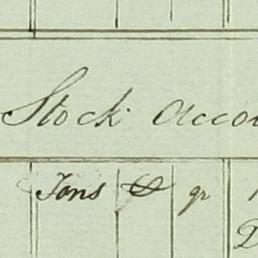 Stock Accou
Tons qr
D